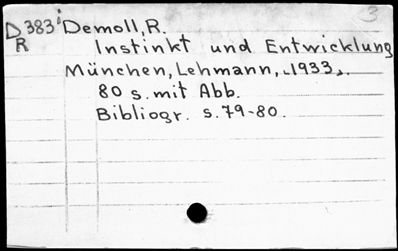 3
D 383ⁱ Demoll, R.
R Instinkt und Entwicklung
München, Lehmann, 1933.
80 s. mit Abb.
Bibliogr. s. 79-80.